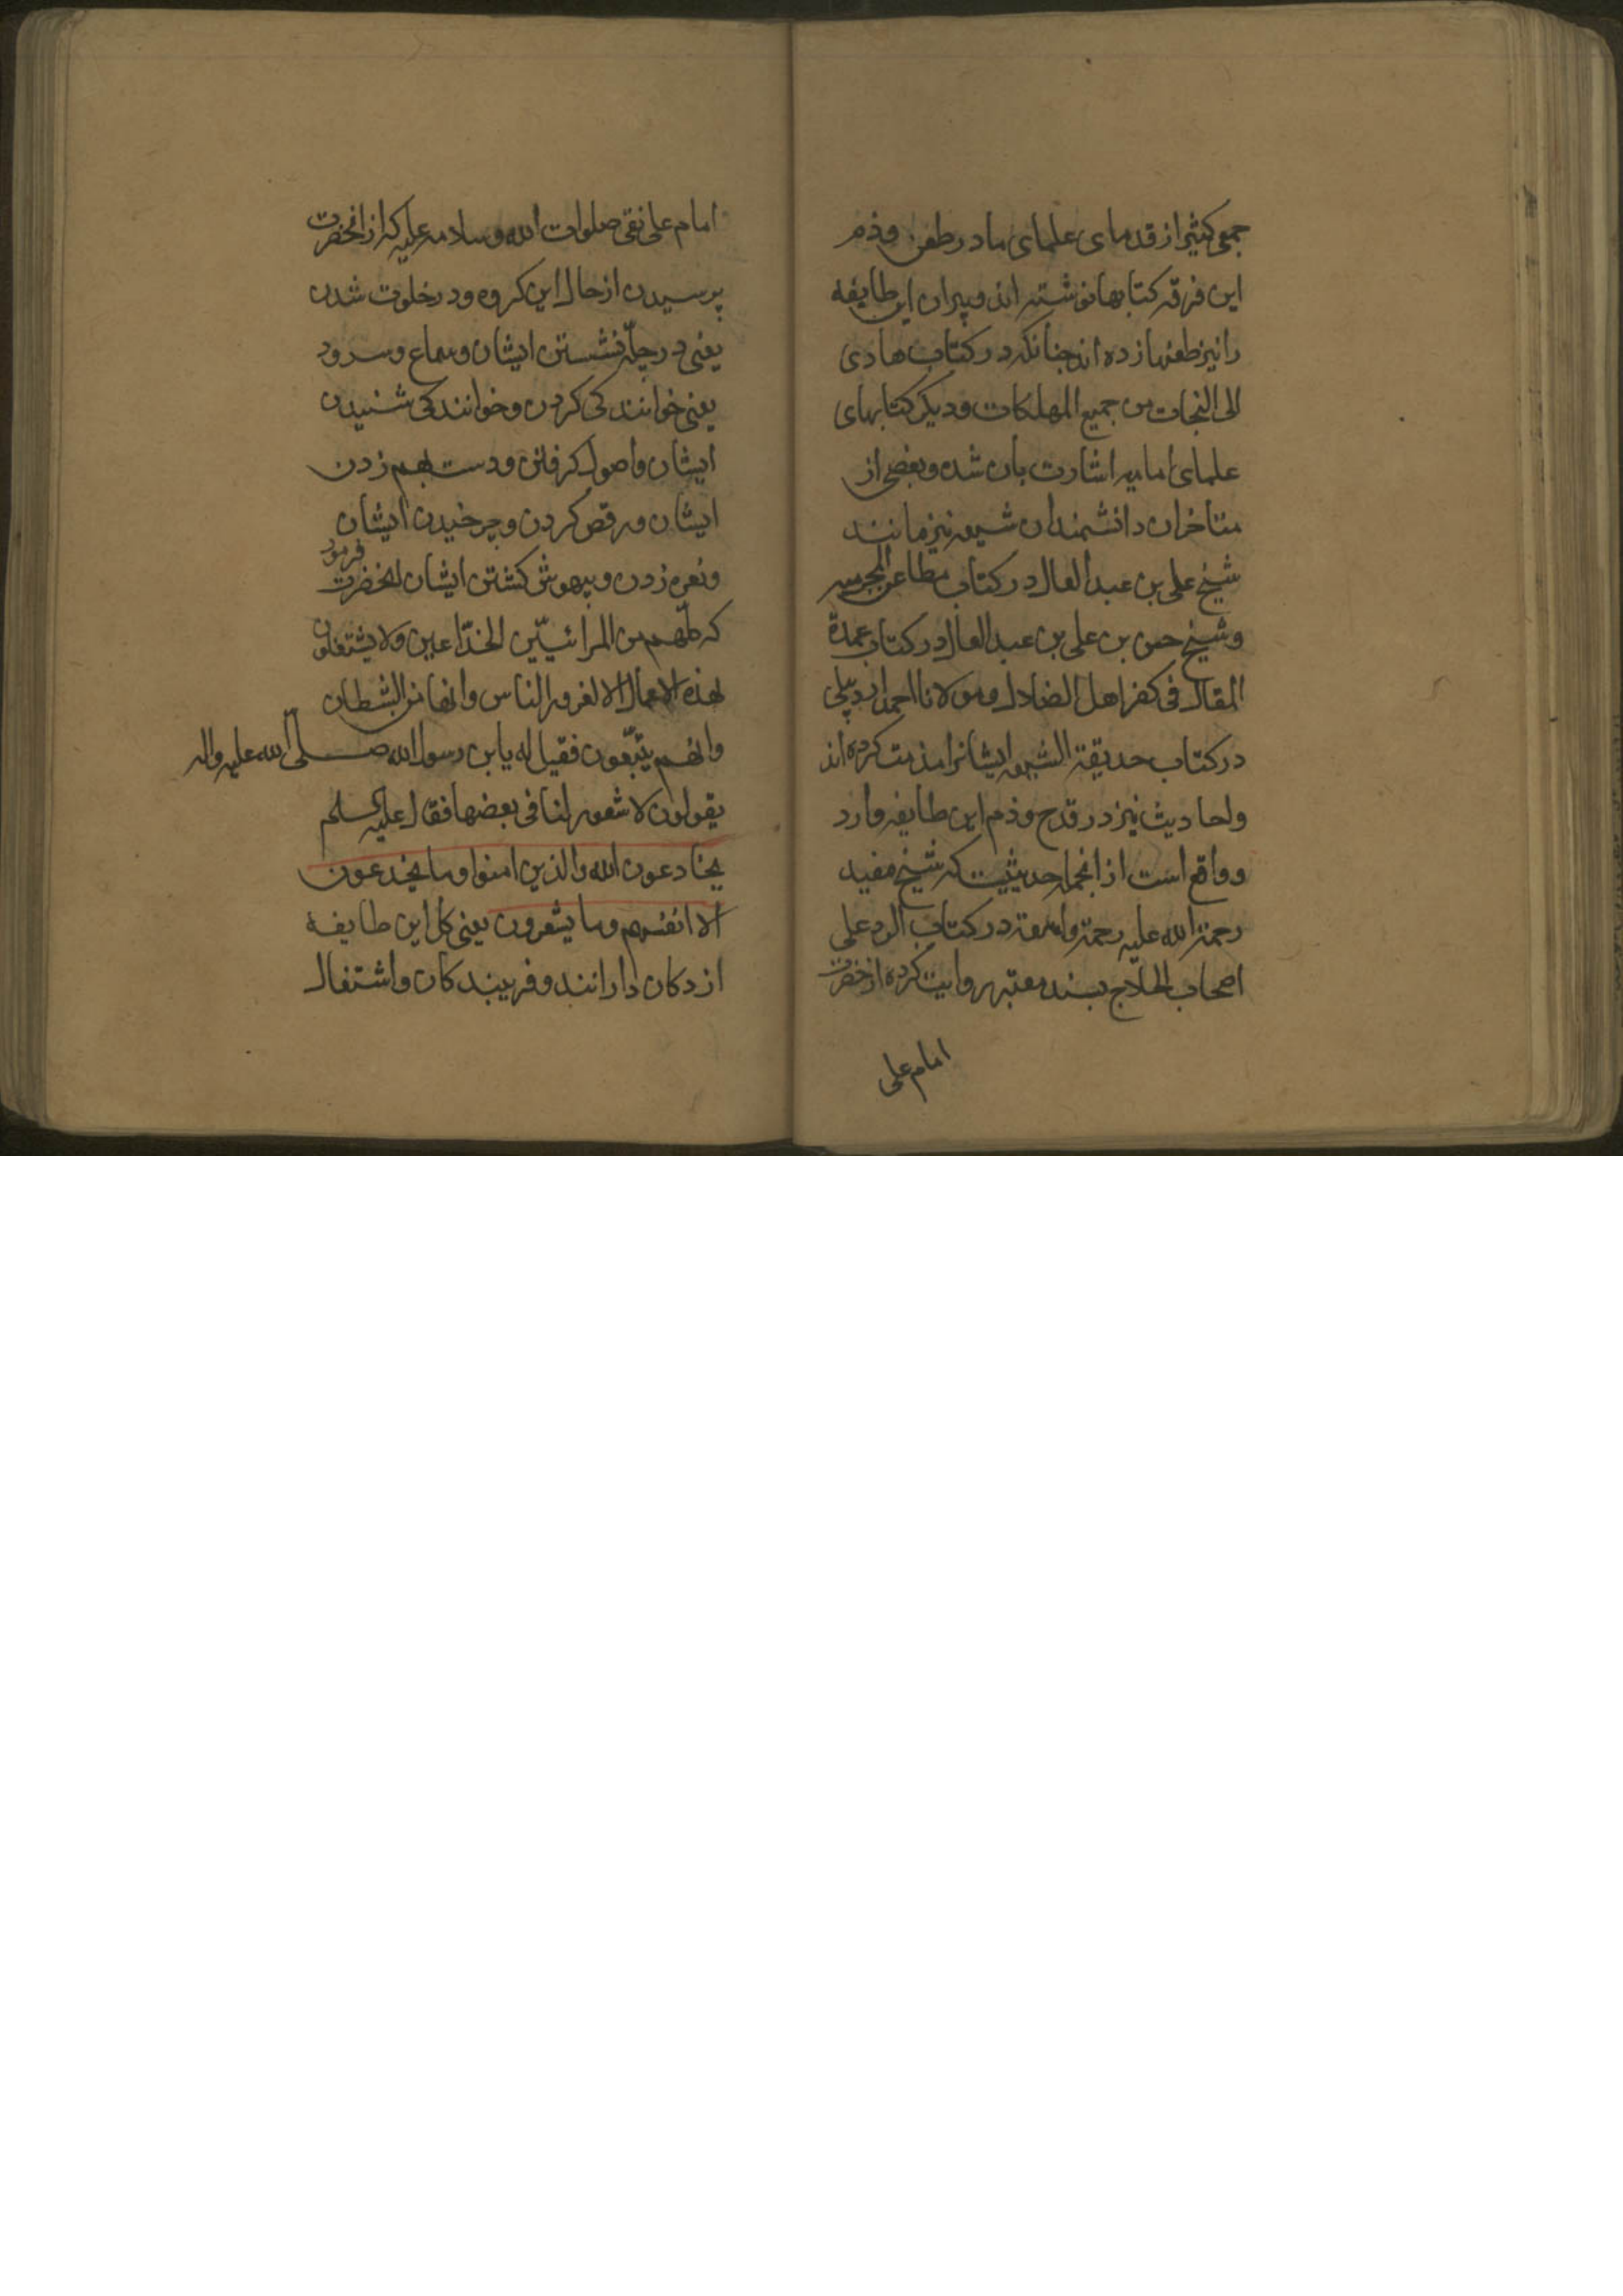 جمعی کثیر از قدمای علمای ما در طعن و ذم
این فرقه کتابها نوشته اند و پیران این طایفه
را نیز طعنها زده اند چنانکه در کتاب هادی
الی النجات من جمیع المهلکات و دیکر کتابهای
علمای امامیه اشارت بان شده و بعضی از
متاخران دانشمندان شیعه نیز مانند
شیخ علی بن عبد العال در کتاب مطاعن المجرمیه
و شیخ حسن بن علی بن عبد العال در کتاب عمدة
المقال فی کفر اهل الضلال و مولانا احمد اردبیلی
در کتاب حدیقة الشیعه ایشانرا مذمت کرده اند
و احادیث نیز در قدح و ذم این طایفه وارد
و واقع است از انجمله حدیثیست که شیخ مفید
رحمة الله علیه رحمة واسعة در کتاب الرد علی
اصحاب الحلاج بسند معتبر روایت کرده از حضرت
امام علی
امام علی نقی صلوات الله و سلامه علیه که از انحضرت
پرسیدن از حال این کروه و در خلوت شدن
یعنی در چلّه نشستن ایشان و سماع و سرود
یعنی خوانندکی کردن و خوانندکی شنیدن
ایشان و اصول کرفتن و دست بهم زدن
ایشان و رقص کردن و چرخیدن ایشان
و نعره زدن و بیهوش کشتن ایشان انحضرت فرمود
که کلّهم من المرائیّین الخدّاعین ولا یشتغلون
بهذه الاعمال الا لغرور الناس و انها من الشیطان
وانهم یتبعون فقیل له یا بن رسول الله صلی الله علیه واله
یقولون لا شعور لنا فی بعضها فقال علیه السلم
یخادعون الله والذین امنوا وما یخدعون
الا انفسهم وما یشعرون یعنی کل این طایفه
از دکان دارانند و فریبندکان و اشتغال